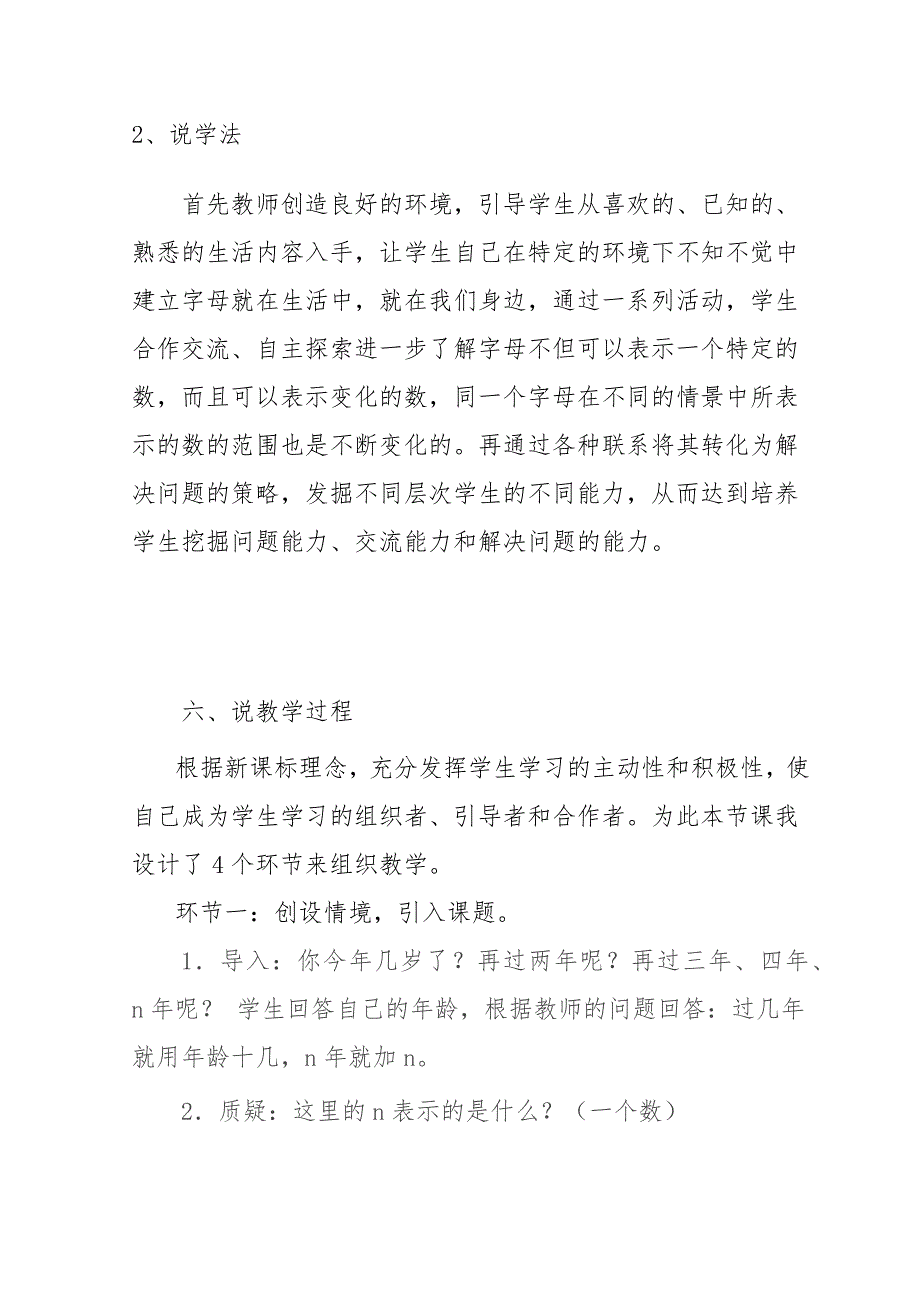 2、说学法
首先教师创造良好的环境，引导学生从喜欢的、已知的、
熟悉的生活内容入手，让学生自己在特定的环境下不知不觉中
建立字母就在生活中，就在我们身边，通过一系列活动，学生
合作交流、自主探索进一步了解字母不但可以表示一个特定的
数，而且可以表示变化的数，同一个字母在不同的情景中所表
示的数的范围也是不断变化的。再通过各种联系将其转化为解
决问题的策略，发掘不同层次学生的不同能力，从而达到培养
学生挖掘问题能力、交流能力和解决问题的能力。
六、说教学过程
根据新课标理念，充分发挥学生学习的主动性和积极性，使
自己成为学生学习的组织者、引导者和合作者。为此本节课我
设计了4个环节来组织教学。
环节一：创设情境，引入课题。
1．导入：你今年几岁了？再过两年呢？再过三年、四年、
n年呢？ 学生回答自己的年龄，根据教师的问题回答：过几年
就用年龄十几，n年就加n。
2．质疑：这里的n表示的是什么？（一个数）